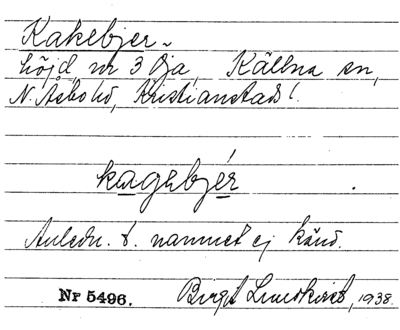 Kakebjer -
höjd, nr 3 Öja, Källna sn,
N. Åsbo hd, Kristianstads l.
kagebjér
Anledn. t. namnet ej känd.
Nr 5496. Birgit Lundkvist, 1938.